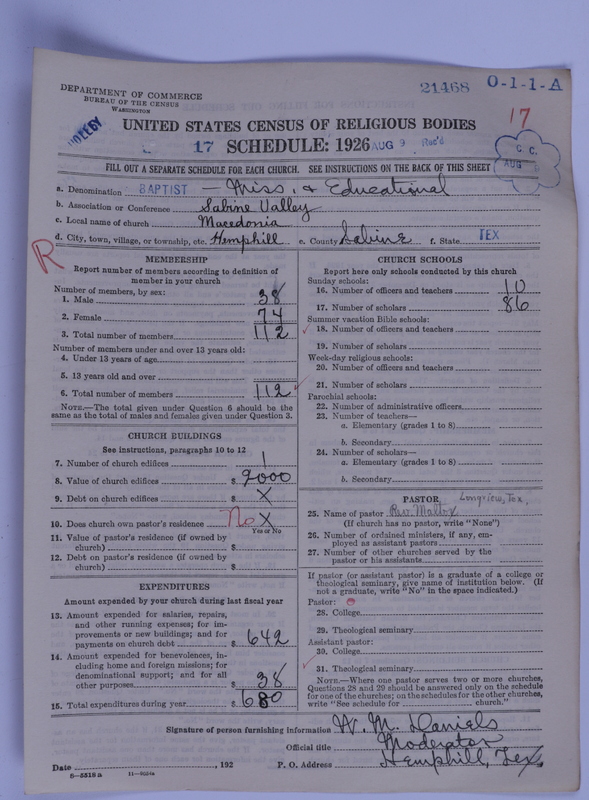 21468 O-1-1-A
DEPARTMENT OF COMMERCE
BUREAU OF THE CENSUS
WASHINGTON
17
UNITED STATES CENSUS OF RELIGIOUS BODIES
17 SCHEDULE: 1926 AUG 9 Rec'd
C. C.
AUG
FILL OUT A SEPARATE SCHEDULE FOR EACH CHURCH. SEE INSTRUCTIONS ON THE BACK OF THIS SHEET
a. Denomination BAPTIST — Miss. & Educational
b. Association or Conference Sabine Valley
c. Local name of church Macedonia
d. City, town, village, or township, etc. Hemphill e. County Sabine f. State TEX
R
MEMBERSHIP
Report number of members according to definition of
member in your church
Number of members, by sex:
1. Male 38
2. Female 74
3. Total number of members 112
Number of members under and over 13 years old:
4. Under 13 years of age
5. 13 years old and over
6. Total number of members 112
NOTE.—The total given under Question 6 should be the
same as the total of males and females given under Question 3.
CHURCH BUILDINGS
See instructions, paragraphs 10 to 12
7. Number of church edifices 1
8. Value of church edifices $ 2000
9. Debt on church edifices $ X
10. Does church own pastor's residence No X
Yes or No
11. Value of pastor's residence (if owned by
church) $
12. Debt on pastor's residence (if owned by
church) $
EXPENDITURES
Amount expended by your church during last fiscal year
13. Amount expended for salaries, repairs,
and other running expenses; for im-
provements or new buildings; and for
payments on church debt $ 642
14. Amount expended for benevolences, in-
cluding home and foreign missions; for
denominational support; and for all
other purposes $ 38
15. Total expenditures during year $ 680
CHURCH SCHOOLS
Report here only schools conducted by this church
Sunday schools:
16. Number of officers and teachers 10
17. Number of scholars 86
Summer vacation Bible schools:
18. Number of officers and teachers
19. Number of scholars
Week-day religious schools:
20. Number of officers and teachers
21. Number of scholars
Parochial schools:
22. Number of administrative officers
23. Number of teachers—
a. Elementary (grades 1 to 8)
b. Secondary
24. Number of scholars—
a. Elementary (grades 1 to 8)
b. Secondary
PASTOR Longview, Tex.
25. Name of pastor Rev. Mattox
(If church has no pastor, write "None")
26. Number of ordained ministers, if any, em-
ployed as assistant pastors
27. Number of other churches served by the
pastor or his assistants
If pastor (or assistant pastor) is a graduate of a college or
theological seminary, give name of institution below. (If
not a graduate, write "No" in the space indicated.)
Pastor:
28. College
29. Theological seminary
Assistant pastor:
30. College
31. Theological seminary
NOTE.—Where one pastor serves two or more churches,
Questions 28 and 29 should be answered only on the schedule
for one of the churches; on the schedules for the other churches,
write "See schedule for church."
Signature of person furnishing information W. M. Daniels
Official title Moderator
Date , 192 P. O. Address Hemphill, Tex